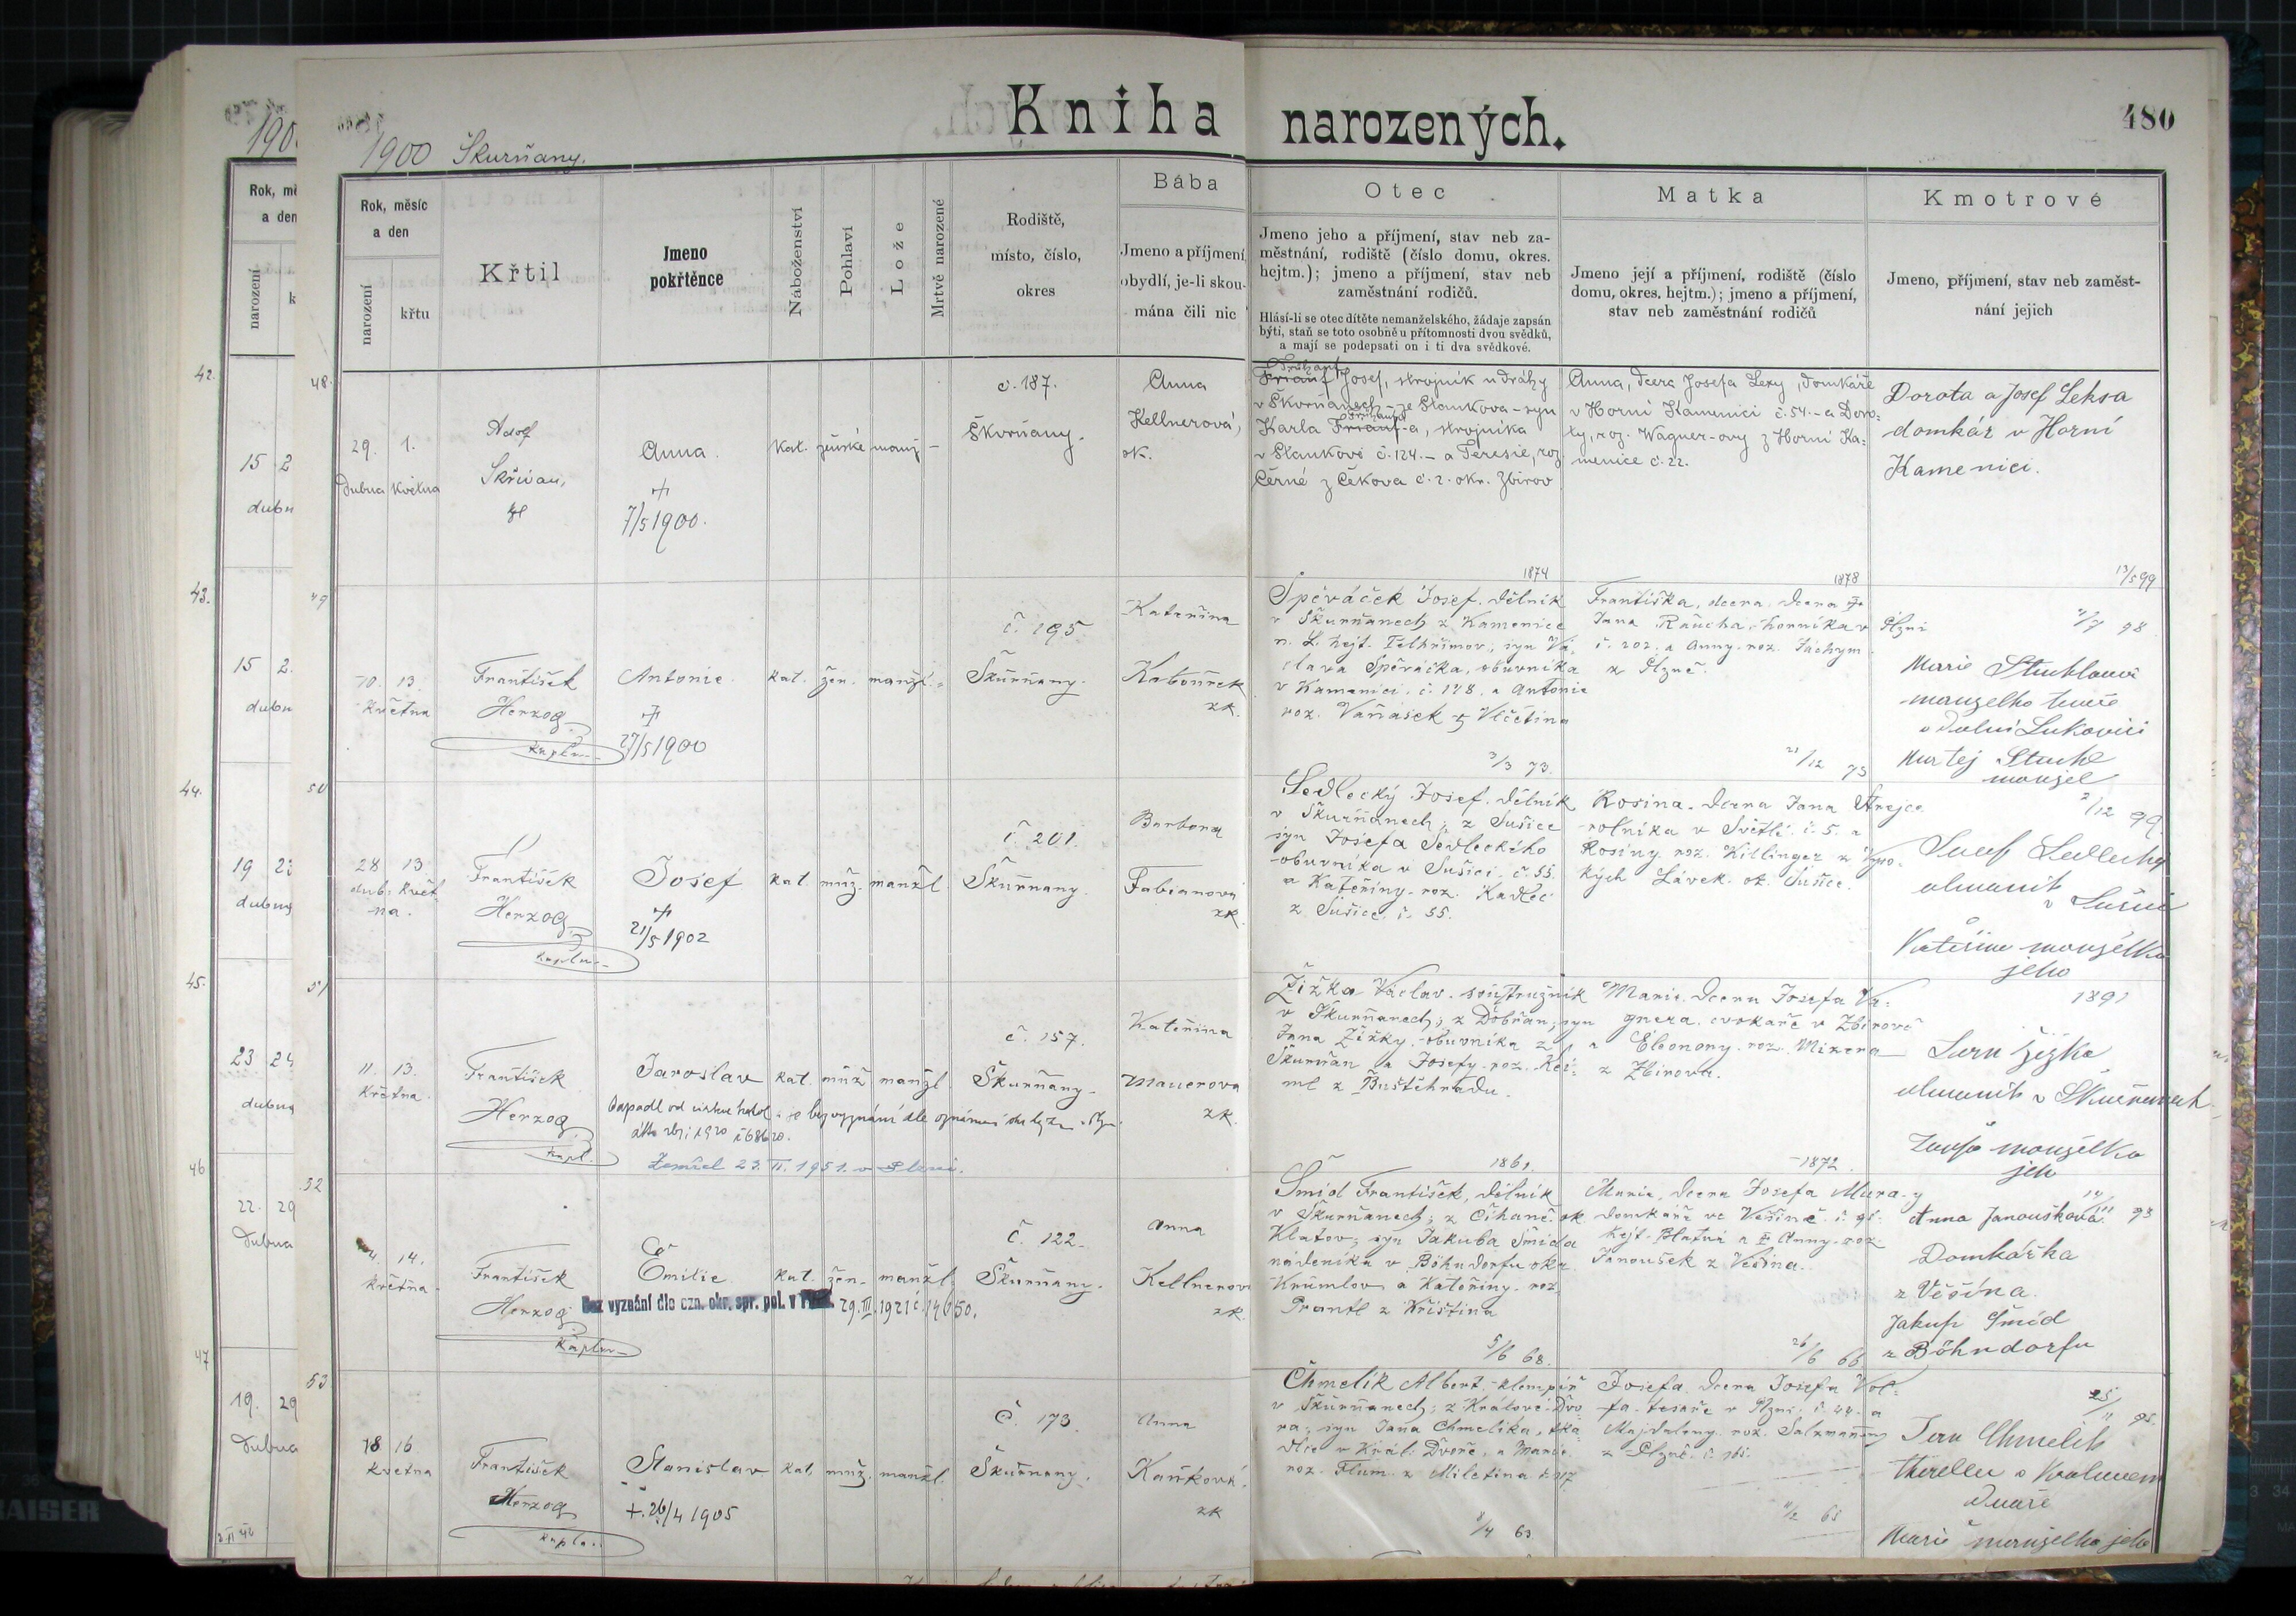 Kniha narozených.
480
1900 Škurňany.
190
Rok, měsíc
a den
narození
křtu
Křtil
Jmeno
pokřtěnce
Náboženství
Pohlaví
Lože
Mrtvě narozené
Rodiště,
místo, číslo,
okres
Bába
Jmeno a příjmení,
obydlí, je-li skou-
mána čili nic
Otec
Jmeno jeho a příjmení, stav neb za-
městnání, rodiště (číslo domu, okres.
hejtm.); jmeno a příjmení, stav neb
zaměstnání rodičů.
Hlásí-li se otec dítěte nemanželského, žádaje zapsán
býti, staň se toto osobně u přítomnosti dvou svědků,
a mají se podepsati on i ti dva svědkové.
Matka
Jmeno její a příjmení, rodiště (číslo
domu, okres. hejtm.); jmeno a příjmení,
stav neb zaměstnání rodičů
Kmotrové
Jmeno, příjmení, stav neb zaměst-
nání jejich
48.
29. 1.
Dubna Května
Adolf
Skřivan,
Anna.
7/5 1900.
Kat. ženské manž –
č. 187.
Škvrňany.
Anna
Kellnerová,
ok.
Josef, strojník u dráhy
v Škvrňanech – ze Staňkova – syn
Karla, strojníka
v Staňkově č. 124. – a Terezie, roz
Černé z Čekova č. 2. okr. Zbirov
Anna, dcera Josefa Lexy, domkáře
v Horní Kamenici č. 54. – a Doro-
ty, roz. Wagner-ovy z Horní Ka-
menice č. 22.
Dorota a Josef Leksa
domkář v Horní
Kamenici.
49
10. 13.
Května
František
Herzog
kaplan
Antonie.
27/5 1900
kat. žen. manžl.
č. 195
Škurňany.
Kateřina
zk.
1874
Spěváček Josef. dělník
v Škurňanech z Kamenice
n. L. hejt. Pelhřimov; syn Vá-
clava Spěváčka, obuvníka
v Kamenici. č. 178. a Antonie
roz. Vaňásek z Včetína
1878
Františka, dcera
Jana Raucha, horníka v Plzni
č. 202. a Anny. roz. Jáchym
z Plzně.
13/5 99
98
Marie
manželka
v Dolní Lukavici
Matěj
manžel
50
28 13
dub. květ-
na.
František
Herzog
kaplan
Josef
21/5 1902
kat. muž. manžl.
č. 201.
Škurňany.
Barbora
Fabianová
zk.
3/3 73.
Sedlecký Josef. dělník
v Škurňanech; z Sušice
syn Josefa Sedleckého
obuvníka v Sušici. č. 55.
a Kateřiny. roz. Kadlec
z Sušice č. 55.
21/12 73
Rosina. dcera Jana Strejce
rolníka v Světlé. č. 5. a
Rosiny. roz. Killinger z Vyso-
kých Lávek. ok. Sušice.
2/12 99.
Josef Sedlecký
obuvník
v Sušici
Kateřina manželka
jeho
51
11. 13.
Května.
František
Herzog
kapl.
Jaroslav
kat. muž manžl
Odpadl od církve katol. je bez vyznání dle oznámení
Zemřel 23. II. 1951. v Plzni.
č. 157.
Škurňany.
Kateřina
Mauerova
zk.
Žižka Václav. soustružník
v Škurňanech; z Dobřan; syn
Jana Žižky. obuvníka z
Škurňan a Josefy. roz. Kei-
ml z Buštěhradu.
Marie. dcera Josefa Va-
gnera. cvokaře v Zbirově
a Eleonory. roz. Mizera
z Zbirova.
1891
Jan Žižka
obuvník v Škurňanech
Josefa manželka
jeho
52
4. 14.
května
František
Herzog
kaplan
Emilie
kat. žen. manžl
Bez vyznání dle ozn. okr. spr. pol. v 29. III. 1921 č. 14650.
č. 122.
Škurňany.
Anna
Kellnerov
zk.
1861.
Šmíd František, dělník
v Škurňanech; z Číhaně. ok
Klatov; syn Jakuba Šmída
nádeníka v Böhndorfu okr.
Krumlov a Kateřiny. roz.
Prantl z Křištína
1872
Marie, dcera Josefa Mura-y
domkáře ve Věšíně č. 91.
hejt. Blatná a Anny. roz
Janoušek z Věšína.
Anna Janoušková
Domkářka
z Věšína.
Jakup Šmíd
z Böhndorfu
53
18 16
Května
František
Herzog
kaplan
Stanislav
+. 26/4 1905
kat. muž. manžl.
č. 173
Škurňany.
Anna
Kaňková.
zk
5/6 68.
Chmelík Albert. klempíř
v Škurňanech; z Králové-Dvo
ra; syn Jana Chmelíka, tka-
dlce v Král. Dvoře, a Marie
roz. Flum. z Miletína č. 117
26/6 68
Josefa. dcera Josefa Vol-
fa. tesaře v Plzni. č. 44. a
Majdaleny. roz. Salzmanny
z Plzně.
25/11 95.
Jan Chmelík
tkadlec v Králové
Dvoře
Marie manželka jeho
8/4 63
11/2 65
42.
15 2
dubn
43.
15 2.
dubn
44.
19 23
dubna
45.
23 24
dubna
46
22. 29
Dubna
47
19. 29
Dubna